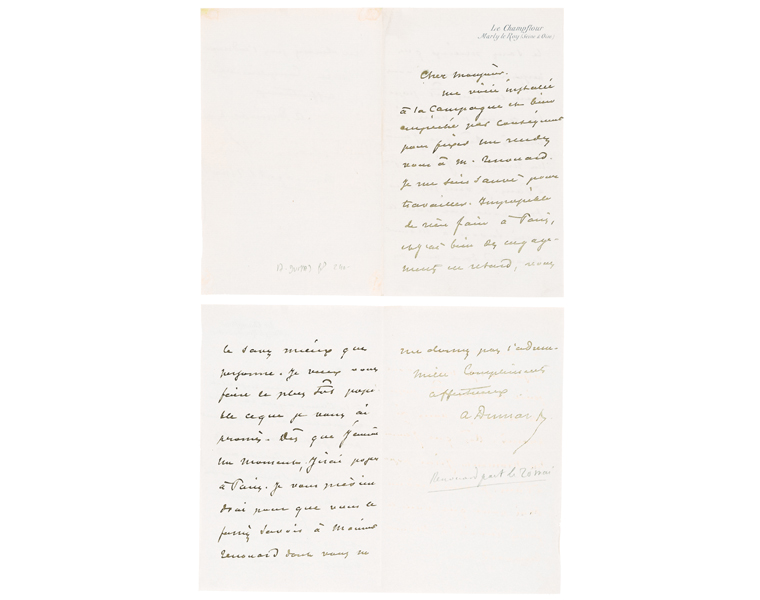 Le Champflour
Marly le Roy (Seine & Oise)
Cher Monsieur.
me voici installé
à la Campagne et bien
empêché par conséquent
pour fixer un rendez
vous à M. Renouard.
Je me suis sauvé pour
travailler. Impossible
de rien faire à Paris,
et j'ai bien des engage-
ments en retard, vous
le savez mieux que
personne. Je veux vous
faire le plus tôt possi-
ble ce que je vous ai
promis. Dès que j'aurai
un moment, j'irai poser
à Paris. Je vous préviendrai
pour que vous le
fassiez savoir à Monsieur
Renouard dont vous ne
me donnez pas l'adresse.
Mille Compliments
affectueux.
A Dumas f
Renouard part le 20 mai